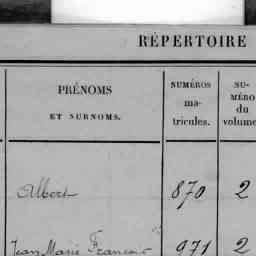 RÉPERTOIRE
PRÉNOMS
ET SURNOMS.
NUMÉROS
ma-
tricules.
NU-
MÉRO
du
volume
Albert 870 2
Jean Marie François 971 2